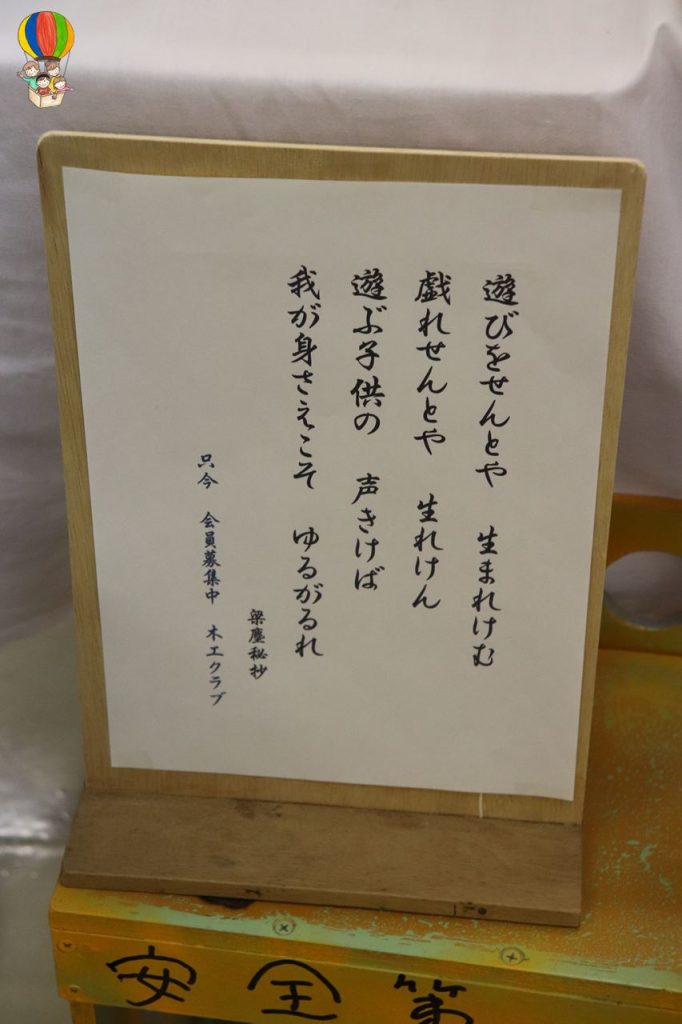 遊びをせんとや 生まれけむ
戯れせんとや 生れけん
遊ぶ子供の 声きけば
我が身さえこそ ゆるがるれ
梁塵秘抄
只今 会員募集中 木工クラブ
安全第